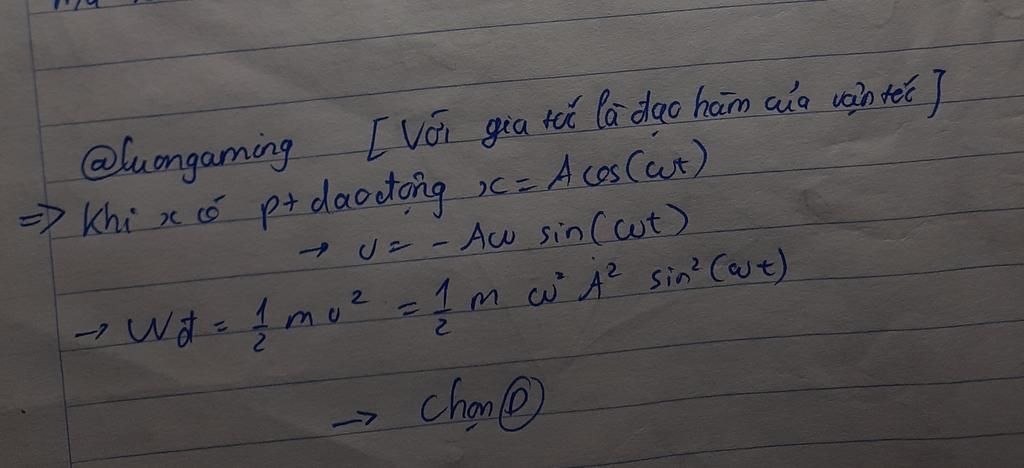 @luongaming [Với gia tốc là đạo hàm của vận tốc]
=> Khi x có pt dao động x = A cos(ωt)
→ v = - Aω sin(ωt)
→ Wđ = 1/2 m v² = 1/2 m ω² A² sin² (ωt)
→ Chọn Ⓓ